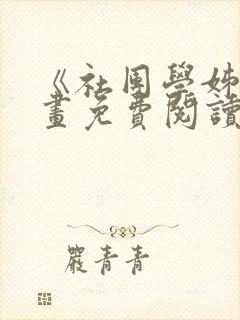 《社团學姊
畫免費閱讀
嚴青青